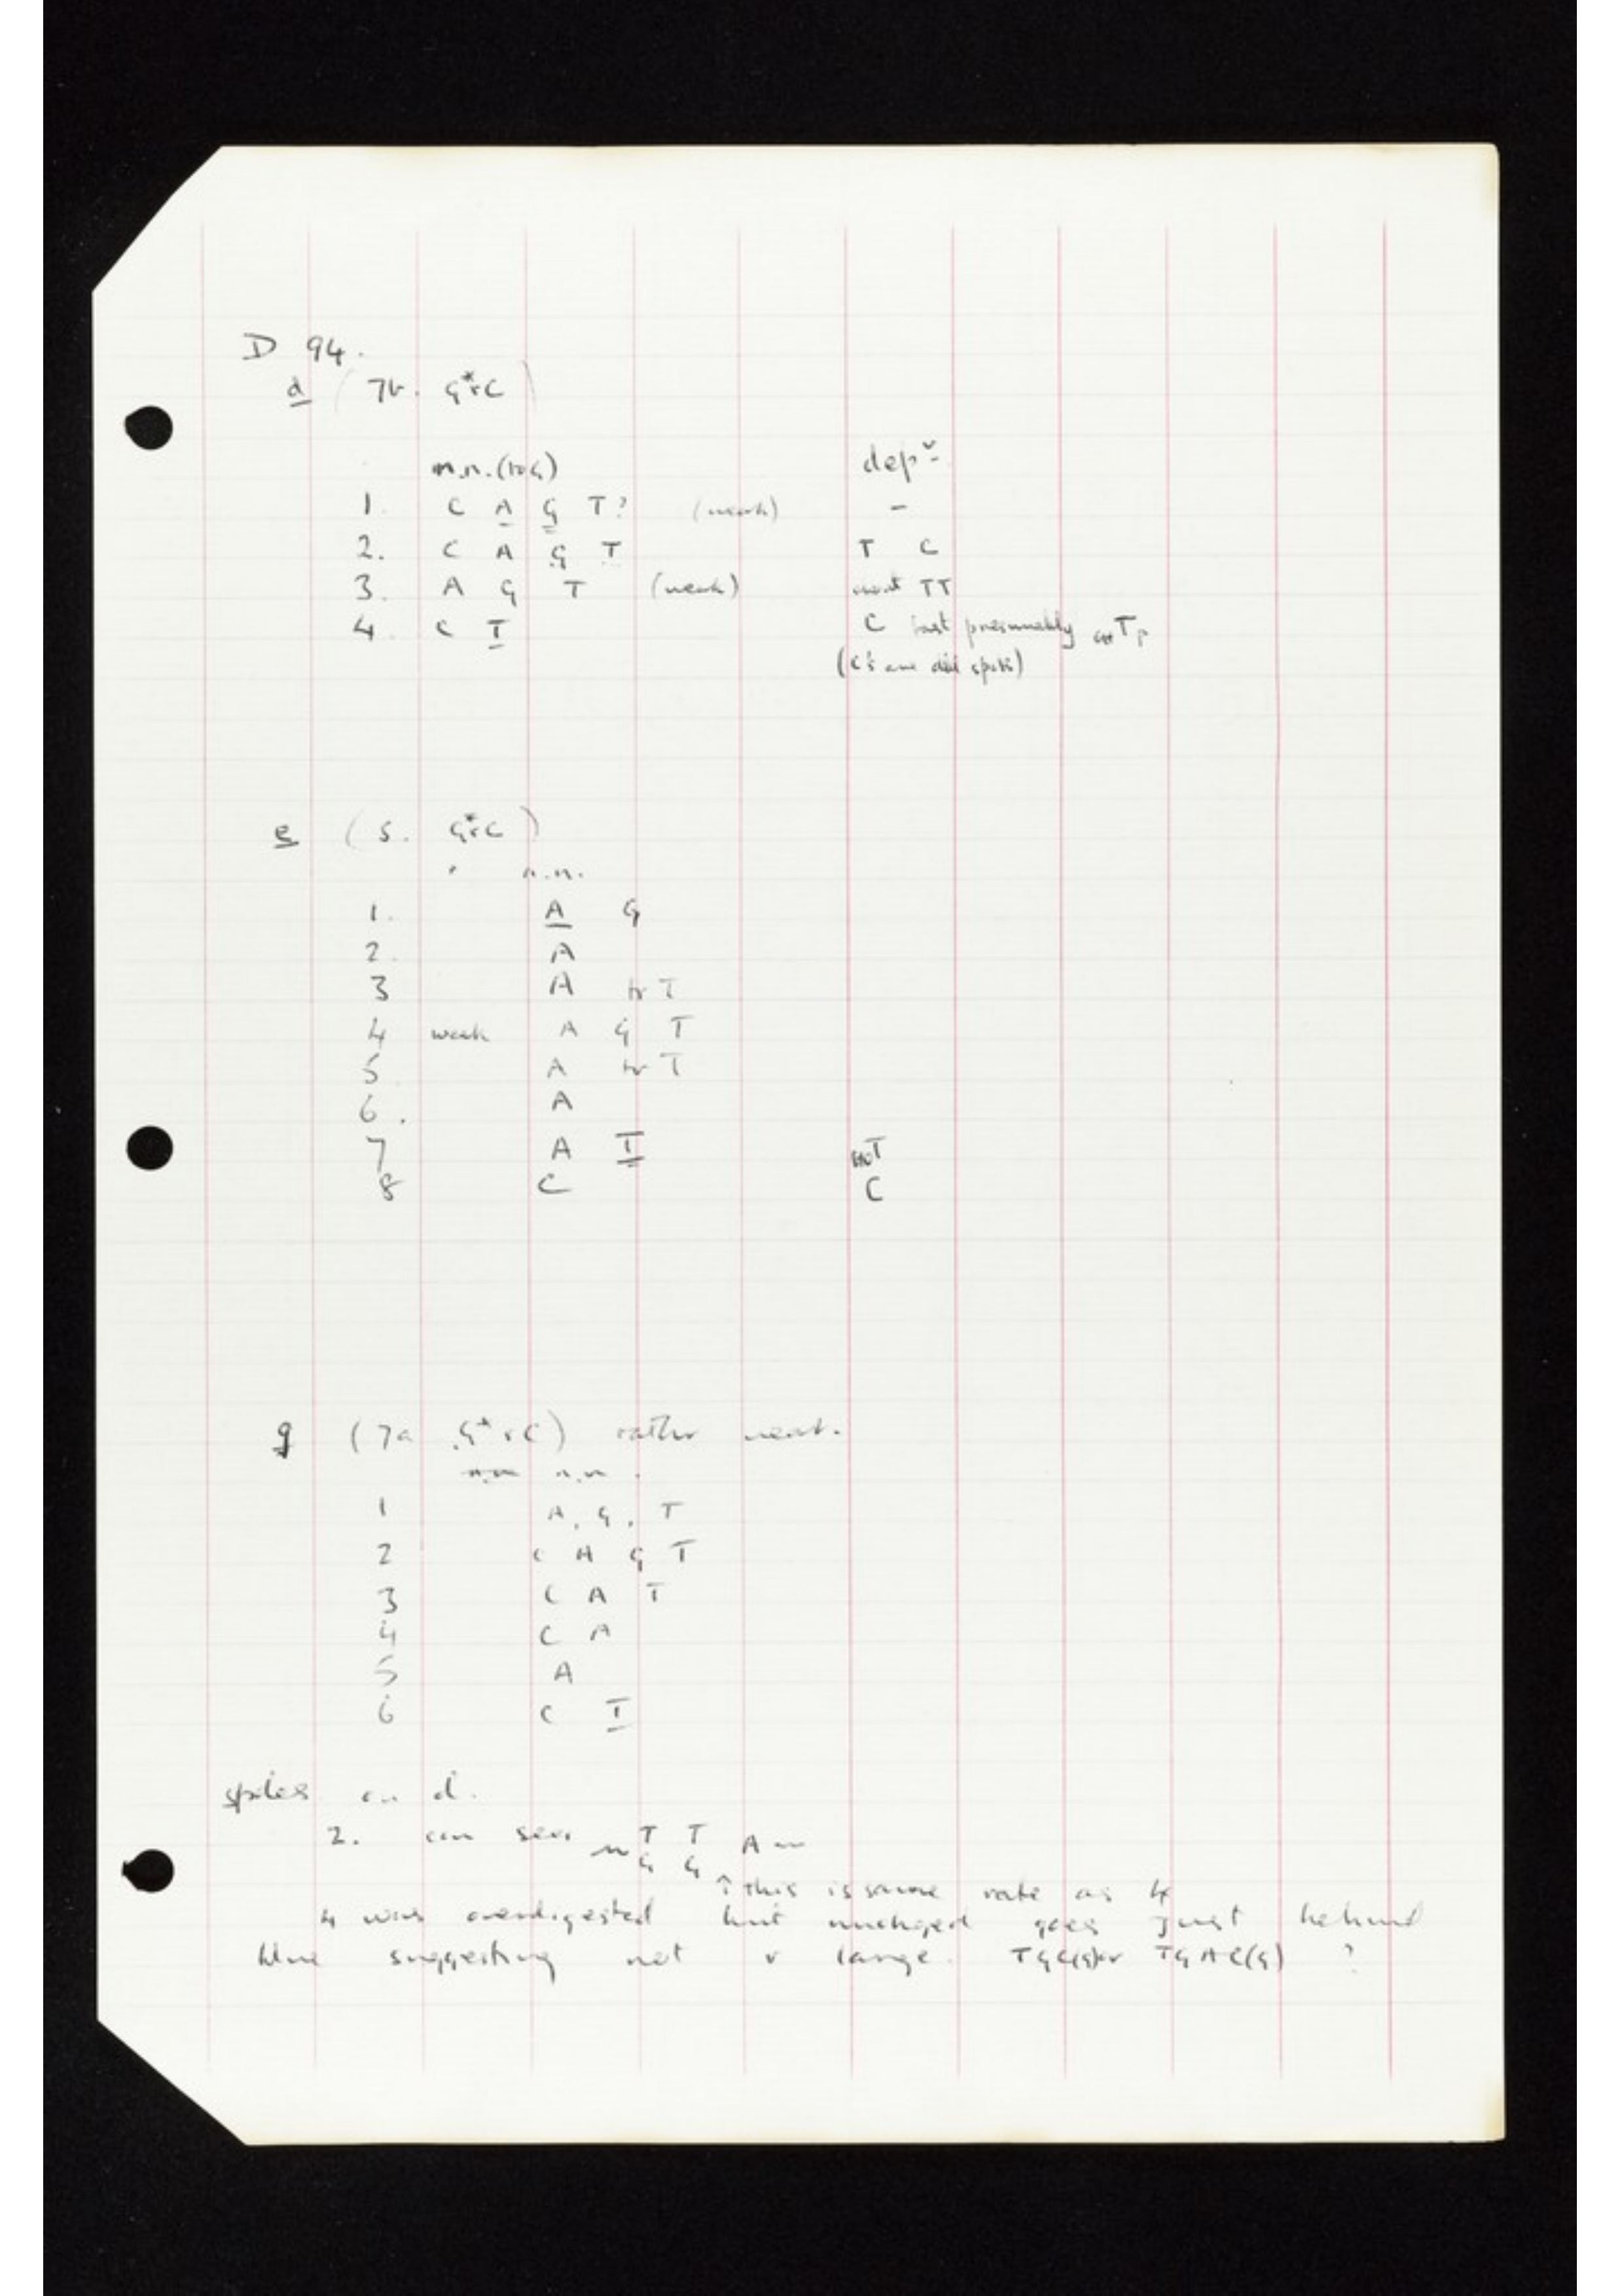 D 94.
d (7b. G*rC)
n.n. (to G) depn
1. C A G T? (weak) -
2. C A G T T C
3. A G T (weak) most TT
4. C T C last presumably T
(C's are did spots)
e (5. G*rC)
n.n.
1. A G
2. A
3 A tr T
4 weak A G T
5 A tr T
6. A
7 A T not T
8 C C
g (7a G*rC) rather weak.
n.n n.n.
1 A. G. T
2 C A G T
3 C A T
4 C A
5 A
6 C T
on d.
2. can T T A
G G
↑ this is same rate as 4
4 was overdigested but goes just behind
blue suggesting not v large. TGC(G) or TGAC(G) ?